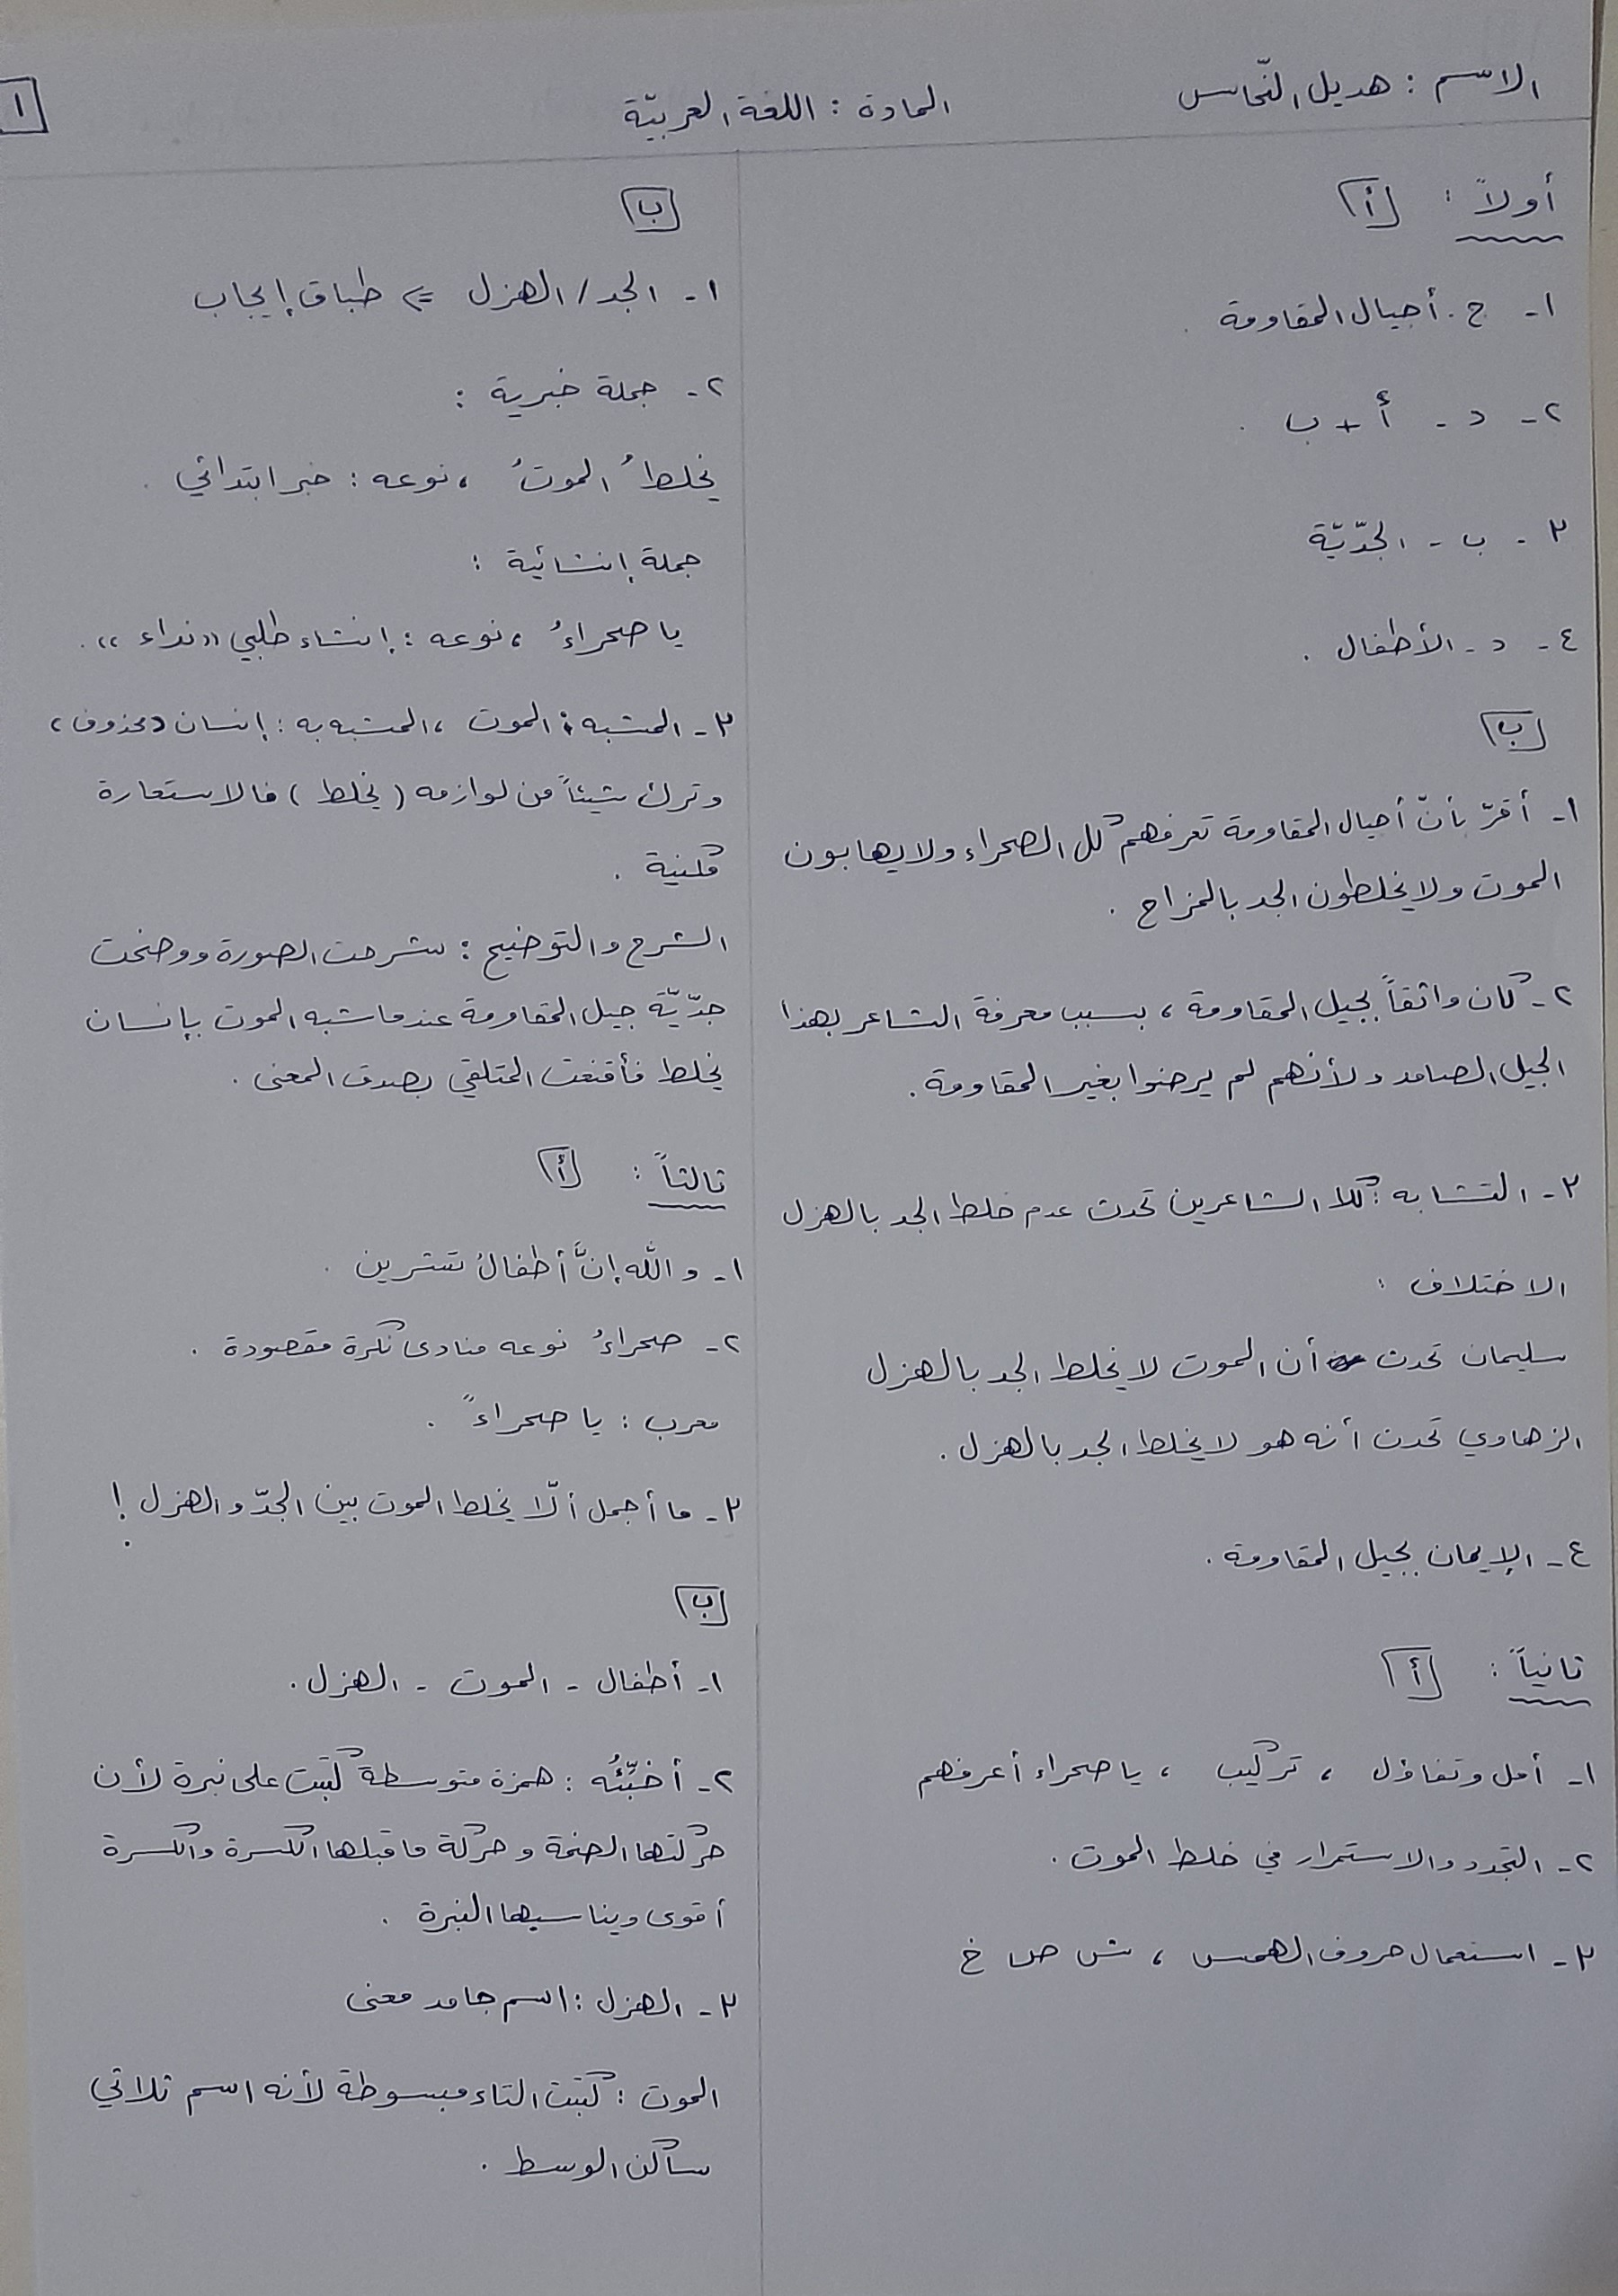 الاسم : هديل النّحاس
المادة : اللغة العربيّة
١
أولاً : أ
١- ج. أجيال المقاومة .
٢- د - أ + ب .
٣- ب - الجدّيّة
٤- د - الأطفال .
ب
١- أقرّ بأنّ أجيال المقاومة تعرفهم كل الصحراء ولا يهابون
الموت ولا يخلطون الجد بالمزاح .
٢- كان واثقاً بجيل المقاومة ، بسبب معرفة الشاعر بهذا
الجيل الصامد ولأنهم لم يرضوا بغير المقاومة .
٣- التشابه : كلا الشاعرين تحدث عدم خلط الجد بالهزل
الاختلاف :
سليمان تحدث أن الموت لا يخلط الجد بالهزل
الزهاوي تحدث أنه هو لا يخلط الجد بالهزل .
٤- الإيمان بجيل المقاومة .
ثانياً : أ
١- أمل وتفاؤل ، تركيب ، يا صحراء أعرفهم
٢- التجدد والاستمرار في خلط الموت .
٣- استعمال حروف الهمس ، ش ص خ
ب
١- الجد / الهزل => طباق إيجاب
٢- جملة خبرية :
يخلطُ الموتُ ، نوعه : خبر ابتدائي .
جملة إنشائية :
يا صحراءُ ، نوعه : إنشاء طلبي «نداء» .
٣- المشبه : الموت ، المشبه به : إنسان (محذوف)
وترك شيئاً من لوازمه (يخلط) فالاستعارة
مكنية .
الشرح والتوضيح : شرحت الصورة ووضحت
جدّيّة جيل المقاومة عندما شبه الموت بإنسان
يخلط فأقنعت المتلقي بصدق المعنى .
ثالثاً : أ
١- والله إنَّ أطفالُ تشرين .
٢- صحراءُ نوعه منادى نكرة مقصودة .
معرب : يا صحراءً .
٣- ما أجمل ألّا يخلط الموت بين الجدّ والهزل !
ب
١- أطفال - الموت - الهزل .
٢- أخبّئُه : همزة متوسطة كتبت على نبرة لأن
حركتها الضمة وحركة ما قبلها الكسرة والكسرة
أقوى ويناسبها النبرة .
٣- الهزل : اسم جامد معنى
الموت : كتبت التاء مبسوطة لأنه اسم ثلاثي
ساكن الوسط .